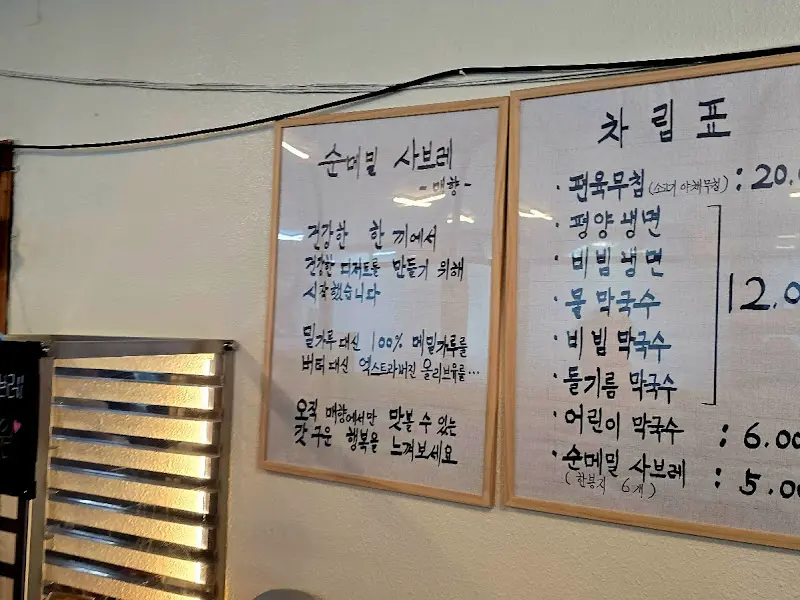 순메밀 사브레
- 매향 -
건강한 한 끼에서
건강한 디저트를 만들기 위해
시작했습니다
밀가루 대신 100% 메밀가루를
버터 대신 엑스트라버진 올리브유를...
오직 매향에서만 맛볼 수 있는
갓 구운 행복을 느껴보세요
차림표
· 편육무침 : 20.0
· 평양냉면
· 비빔냉면
· 물 막국수
· 비빔 막국수
· 들기름 막국수
12.0
· 어린이 막국수 : 6.00
· 순메밀 사브레 : 5.00
(한봉지 6개)
브레